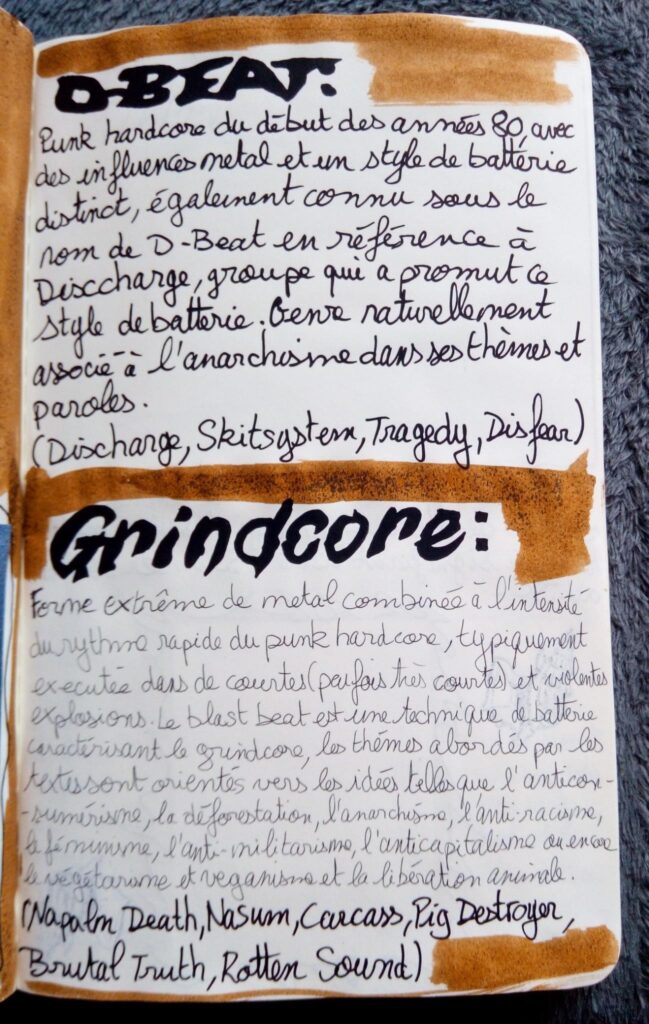 D-BEAT:
Punk hardcore du début des années 80, avec
des influences metal et un style de batterie
distinct, également connu sous le
nom de D-Beat en référence à
Disccharge, groupe qui a promut ce
style de batterie. Genre naturellement
associé à l'anarchisme dans ses thèmes et
paroles.
(Discharge, Skitsystem, Tragedy, Disfear)
Grindcore:
Forme extrême de metal combinée à l'intensité
du rythme rapide du punk hardcore, typiquement
executée dans de courtes (parfois très courtes) et violentes
explosions. Le blast beat est une technique de batterie
caractérisant le grindcore, les thèmes abordés par les
textes sont orientés vers les idées telles que l'anticon-
-sumérisme, la déforestation, l'anarchisme, l'anti-racisme,
le féminisme, l'anti-militarisme, l'anticapitalisme ou encore
le végétarisme et veganisme et la libération animale.
(Napalm Death, Nasum, Carcass, Pig Destroyer,
Brutal Truth, Rotten Sound)